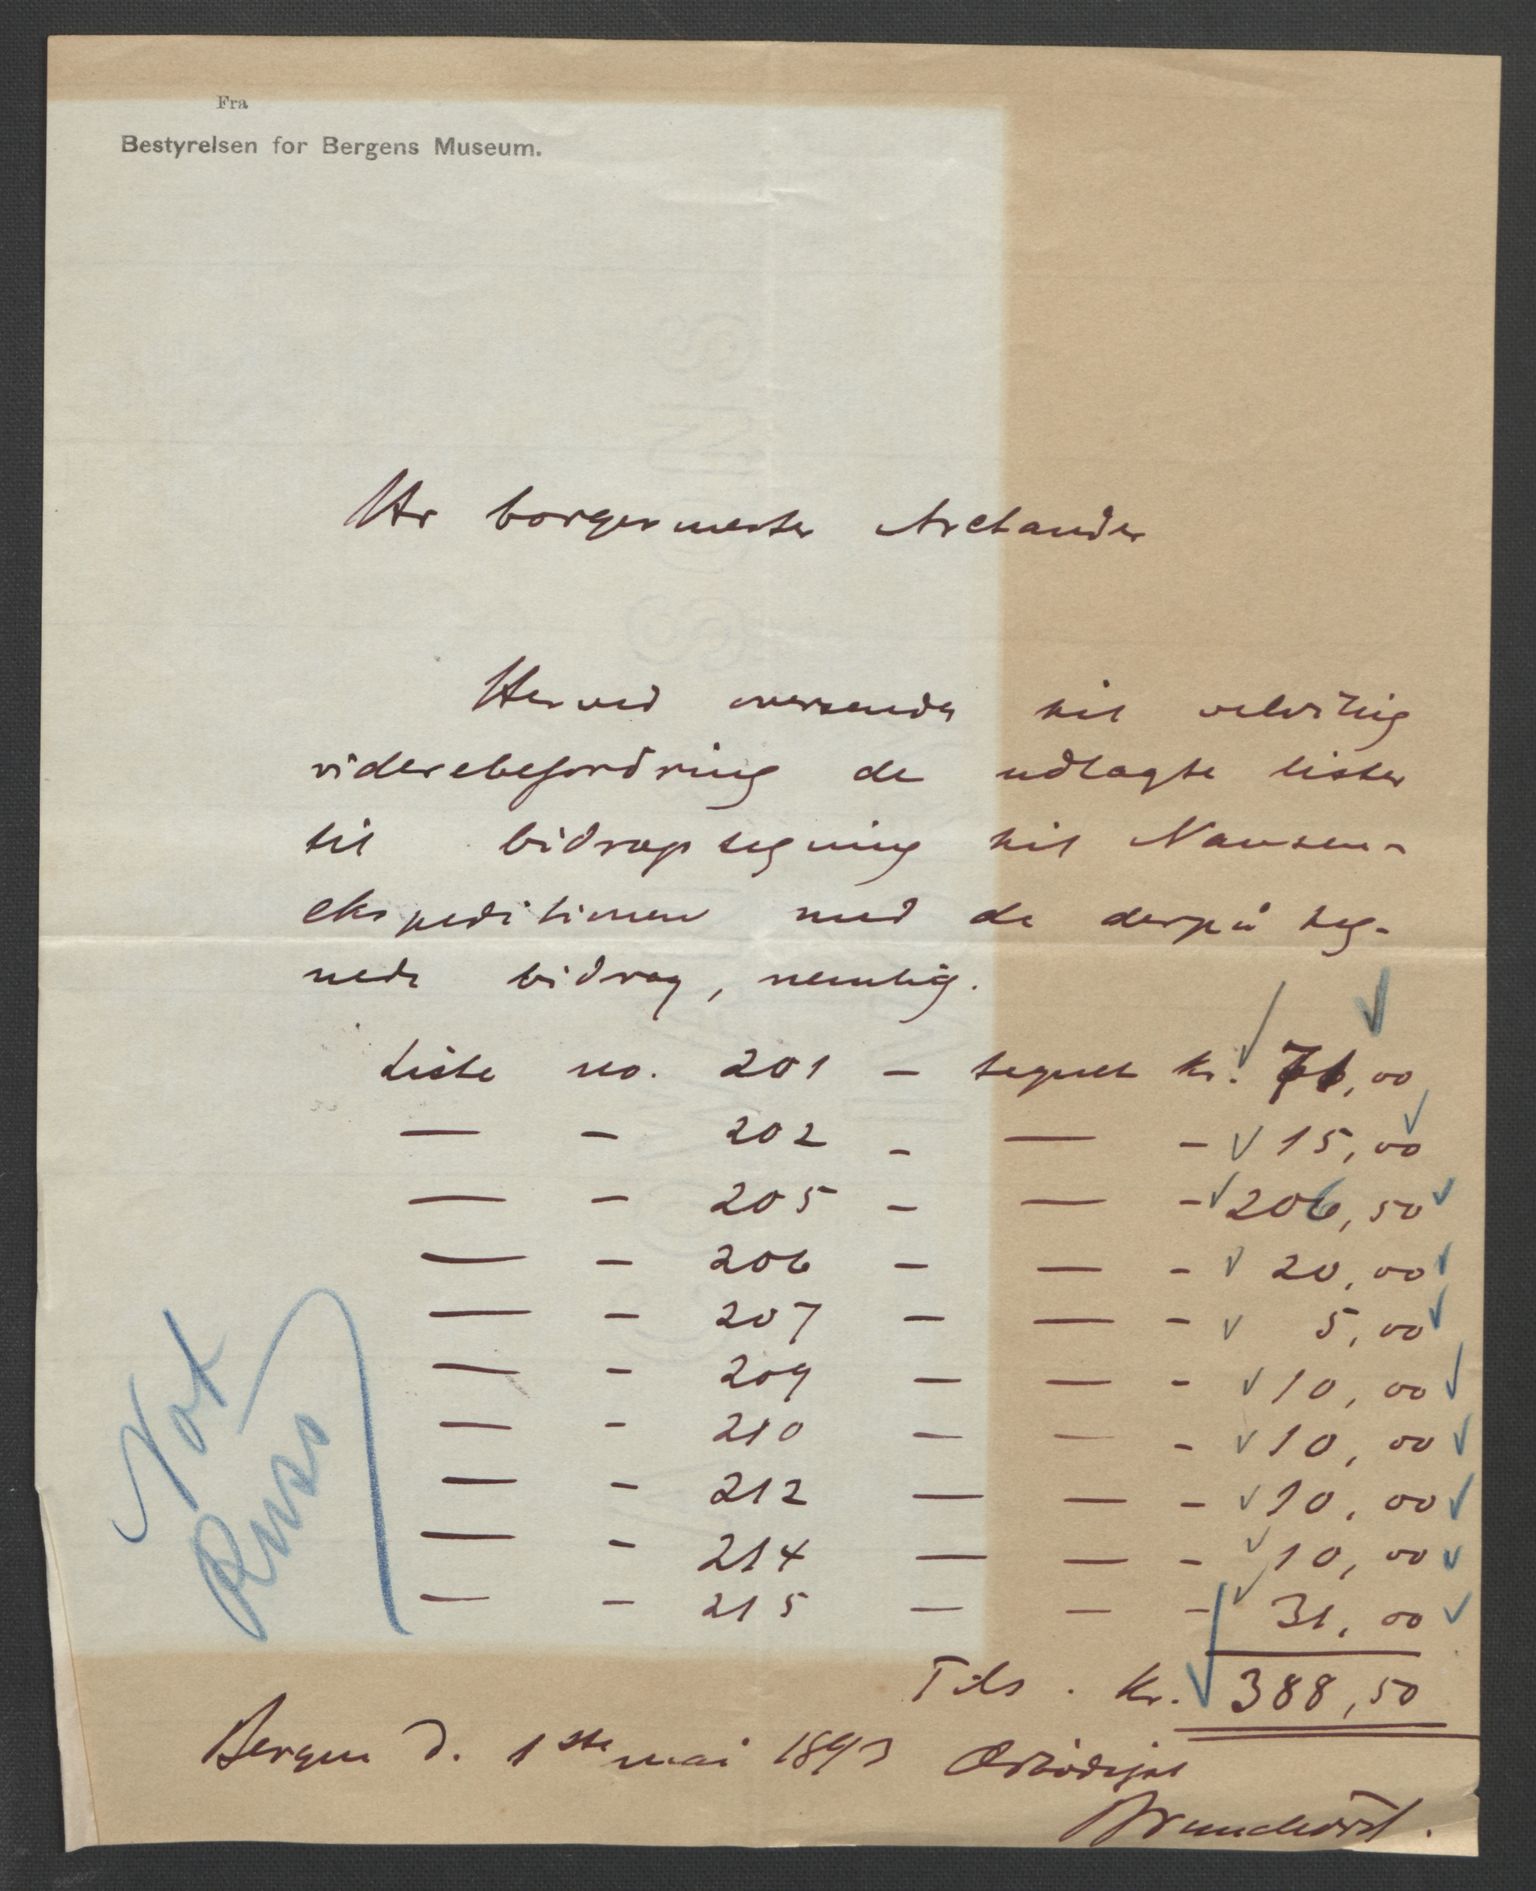 Fra
Bestyrelsen for Bergens Museum.
Hr borgermester Arctander
Herved oversendes til velvillig
viderebefordring de udlagte lister
til bidragstegning til Nansen-
ekspeditionen med de derpå teg-
nede bidrag, nemlig.
Liste no. 201 – tegnet kr. 71,00
— – 202 – — – 15,00
— – 205 – — – 206,50
— – 206 – — – 20,00
— – 207 – — – 5,00
— – 209 — — – 10,00
— – 210 — — – 10,00
— – 212 — — – 10,00
— – 214 — — – 10,00
— – 215 — — – 31,00
Tils. kr. 388,50
Not
Russ
Bergen d. 1ste mai 1893 Ærbødigst
Brunchorst.